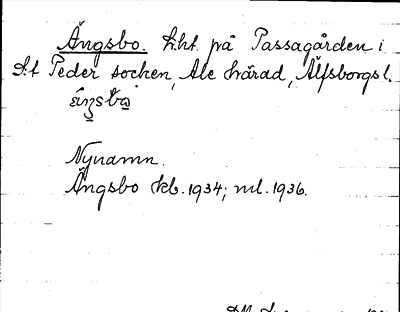 Ängsbo. h.ht. på Passagården i
S:t Peder socken, Ale härad, Älfsborgs l.
Nynamn.
Ängsbo kb. 1934; ml. 1936.